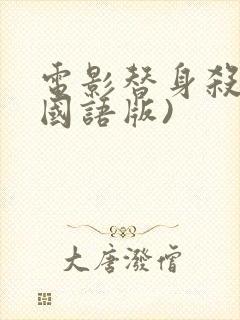 電影替身殺
國語版)
大唐潑僧